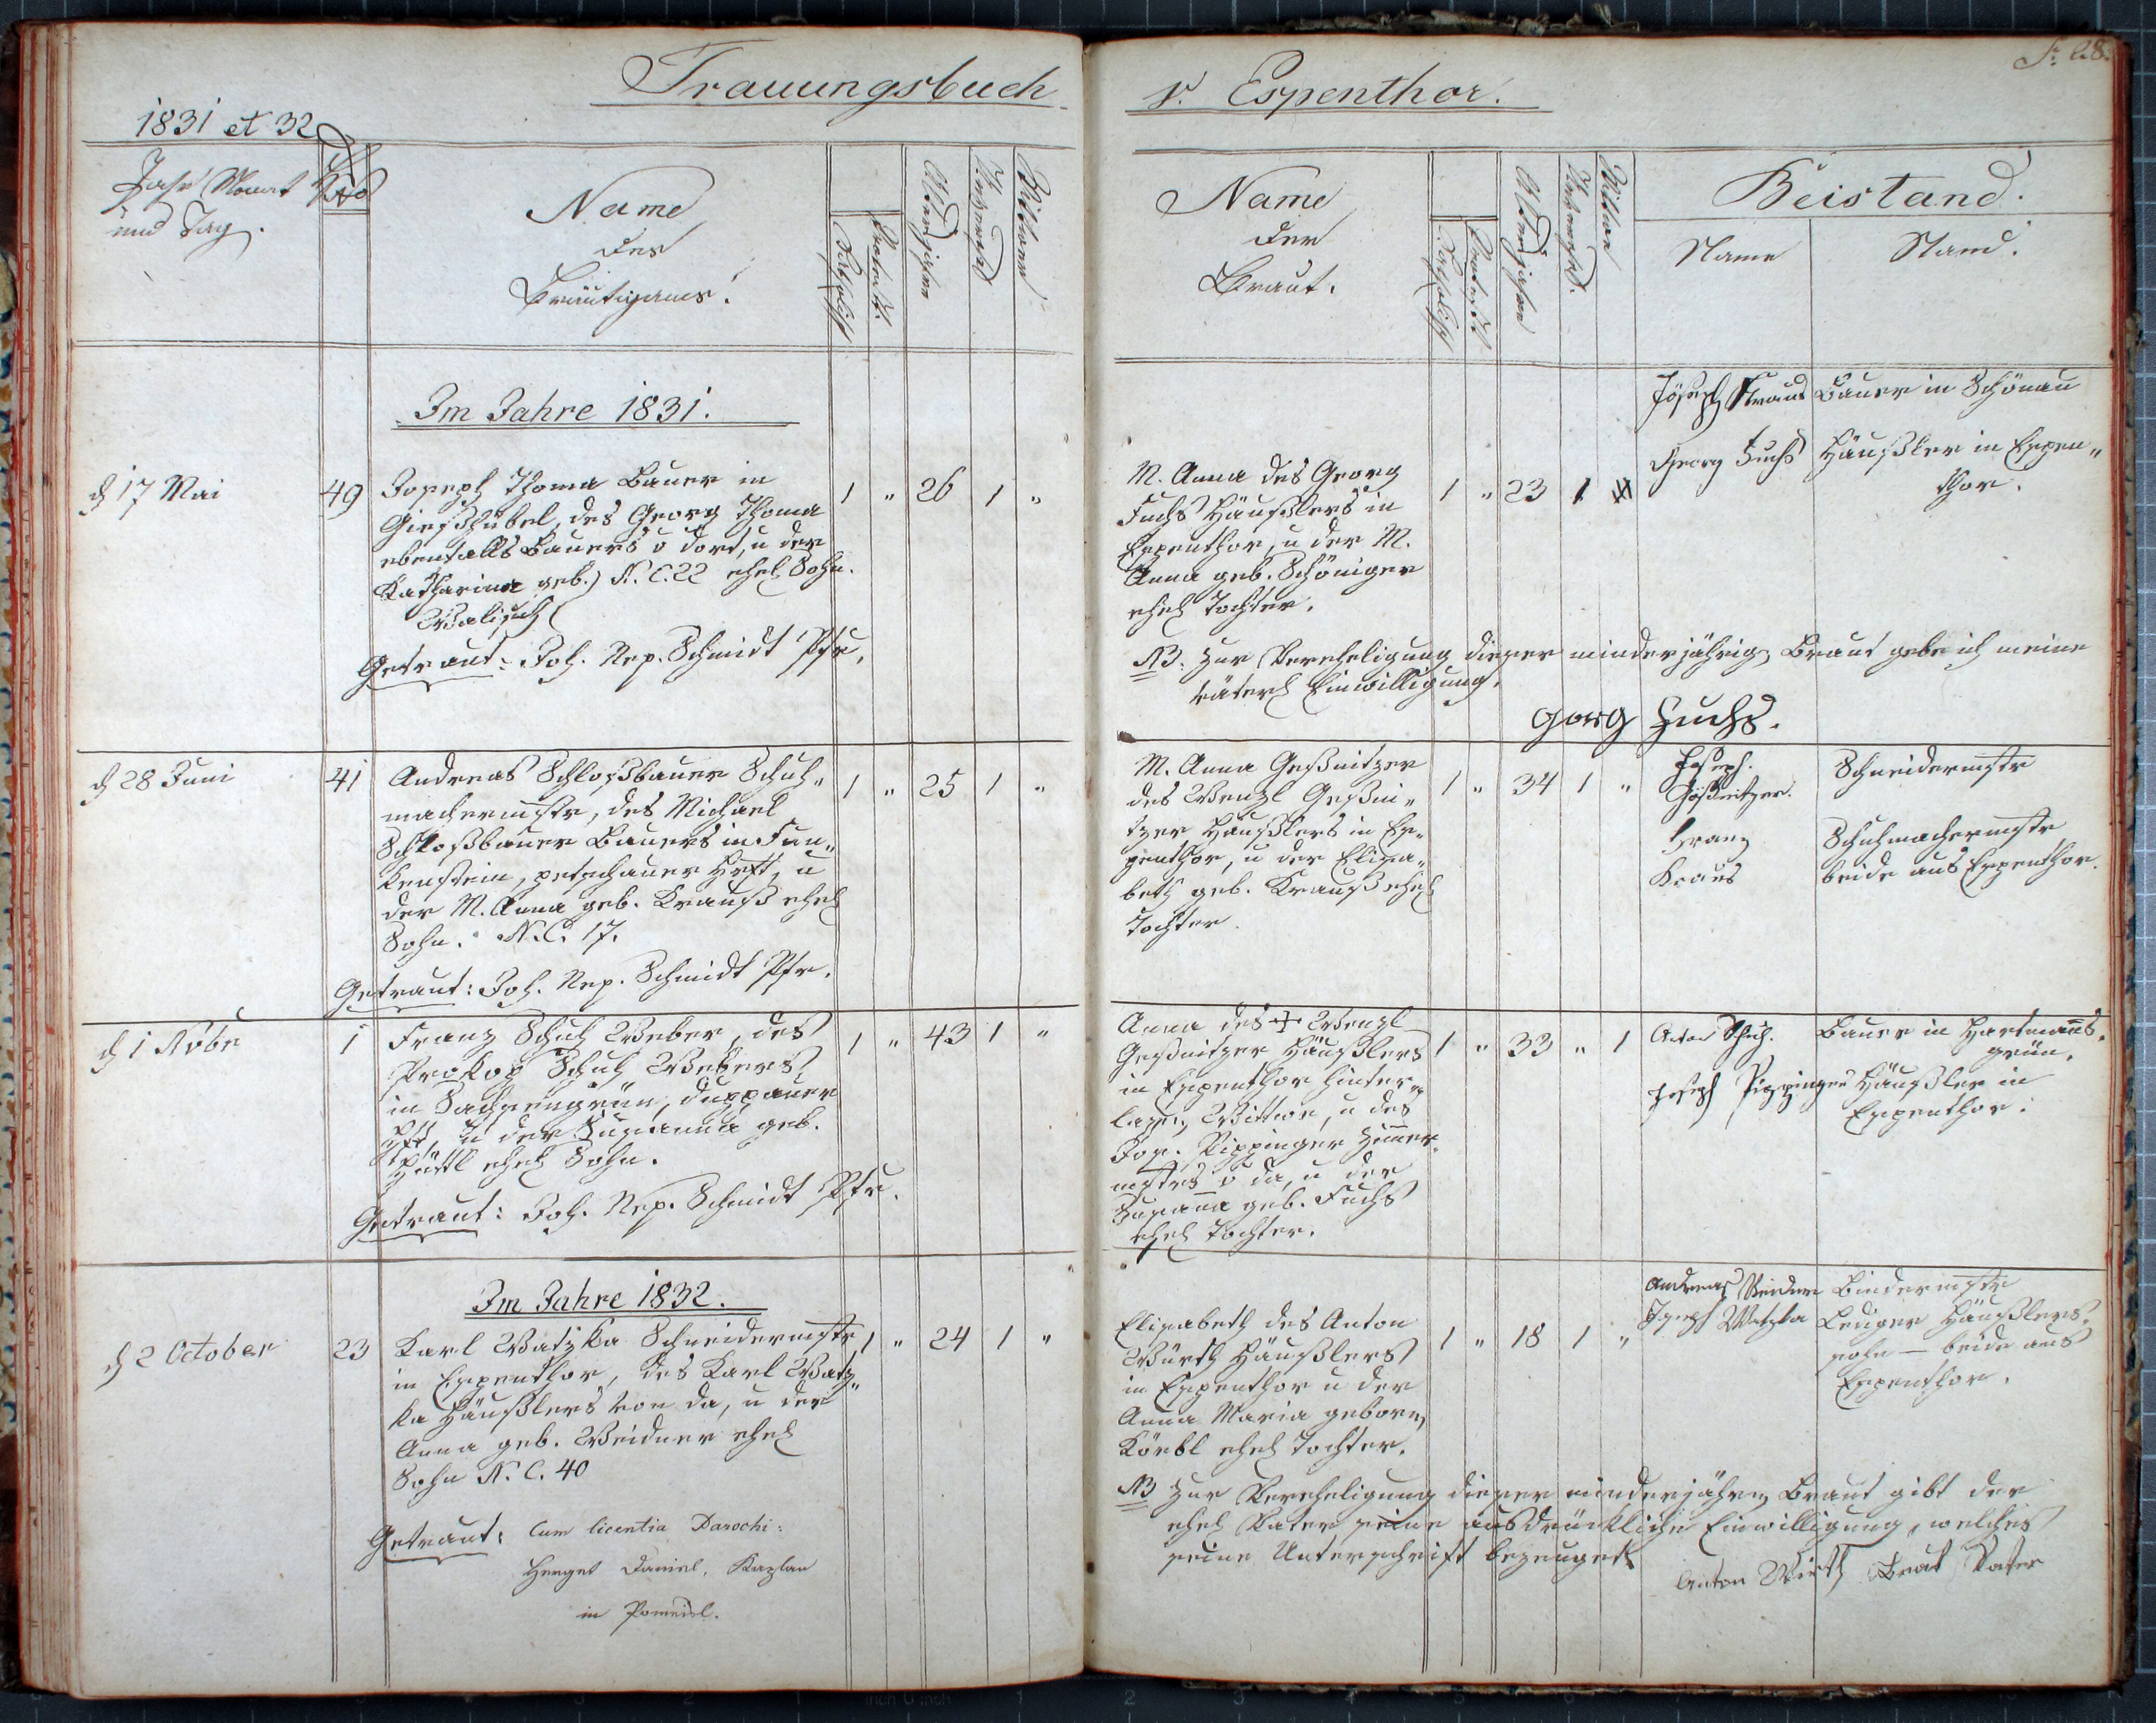 Trauungsbuch
v. Espenthor.
1831 et 32
Jahr Monat
und Tag.
Name
des
Bräutigams.
Katholisch
Protest.
Altersjahre
Unverehel.
Wittwer
Name
der
Braut.
Katholisch
Protest.
Altersjahre
Unverehel.
Wittwe
Beistand.
Name
Stand.
Im Jahre 1831.
d 17 Mai
49
Joseph Thoma Bauer in
Gießhübel, des Georg Thoma
ebenfalls Bauers v dort, u der
Katharina geb. N. C. 22 ehel Sohn.
Getraut: Joh. Nep. Schmidt Pfr.
1 " 26 1 "
M. Anna des Georg
Fuchs Häußlers in
Espenthor, u der M.
Anna geb. Schöniger
ehel Tochter.
1 " 23 1
Joseph Bauer in Schönau
Georg Fuchs Häußler in Espen"
thor.
NB. Zur Vereheligung dieser minderjährig Braut gebe ich meine
väterl Einwilligung.
Georg Fuchs.
d 28 Juni
41
Andreas Schloßbauer Schuh"
machermstr, des Michael
Schloßbauer Bauers in Fun"
kenstein, petschauer Hft, u
der M. Anna geb. Krauß ehel
Sohn. N. C. 17.
Getraut: Joh. Nep. Schmidt Pfr.
1 " 25 1 "
M. Anna Geßnitzer
des Wenzl Geßni"
tzer Häußlers in Es"
penthor, u der Elisa"
beth geb. Krauß ehel
Tochter.
1 " 34 1 "
Joseph
Geßnitzer.
Schneidermstr
Franz
Kraus
Schuhmachermstr
beide aus Espenthor.
d 1 Nvbr
1
Franz Schuh Weber, des
Prokop Schuh Webers
in Sachsengrün, duppauer
Hft, u der Susanna geb.
ehel Sohn.
Getraut: Joh. Nep. Schmidt Pfr.
1 " 43 1 "
Anna des + Wenzl
Geßnitzer Häußlers
in Espenthor hinter"
lassen Wittwe, u des
Jos. Pippinger Zimmer"
mstrs v da, u der
Susanna geb. Fuchs
ehel Tochter.
1 " 33 " 1
Anton Schuh. Bauer in Hartmanns"
grün.
Joseph Pippinger Häußler in
Espenthor.
Im Jahre 1832.
d 2 October
23
Karl Watzka Schneidermstr
in Espenthor, des Karl Watz"
ka Häußlers von da, u der
Anna geb. Weidner ehel
Sohn N. C. 40
Getraut: Cum licentia Parochi:
Herget Daniel, Kaplan
in Pomeisl.
1 " 24 1 "
Elisabeth des Anton
Würth Häußlers
in Espenthor u der
Anna Maria geborn
Körbl ehel Tochter.
1 " 18 1 "
Andreas Weidner Bindermstr
Joseph Watzka Lediger Häußlers"
sohn — beide aus
Espenthor.
NB Zur Vereheligung dieser minderjähren Braut gibt der
ehel Vater seine ausdrückliche Einwilligung, welches
seine Unterschrift bezeuget.
Anton Wirth Braut Vater